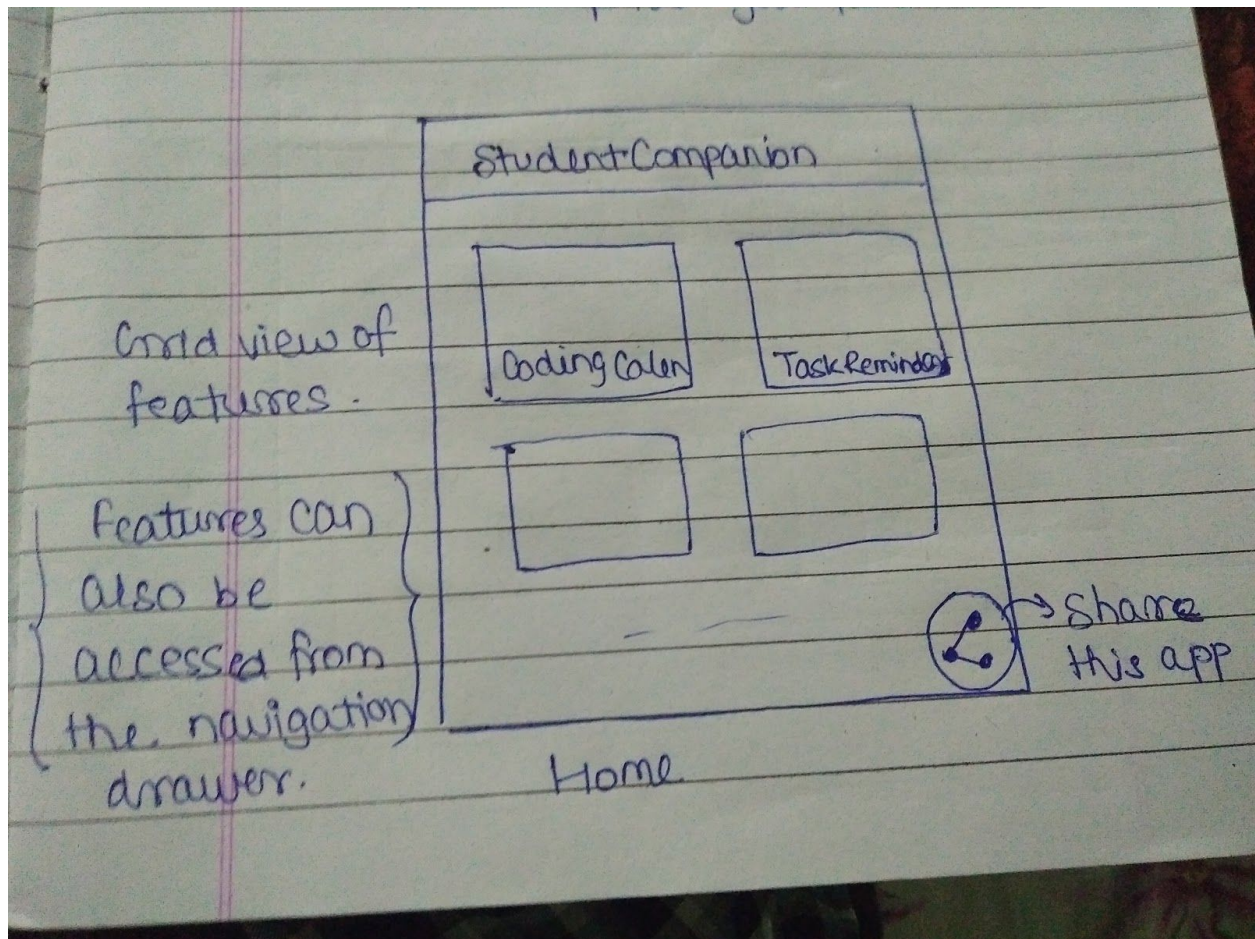 StudentCompanion
Coding Calen
TaskReminder
Grid view of
features.
Features can
also be
accessed from
the navigation
drawer.
Share
this app
Home